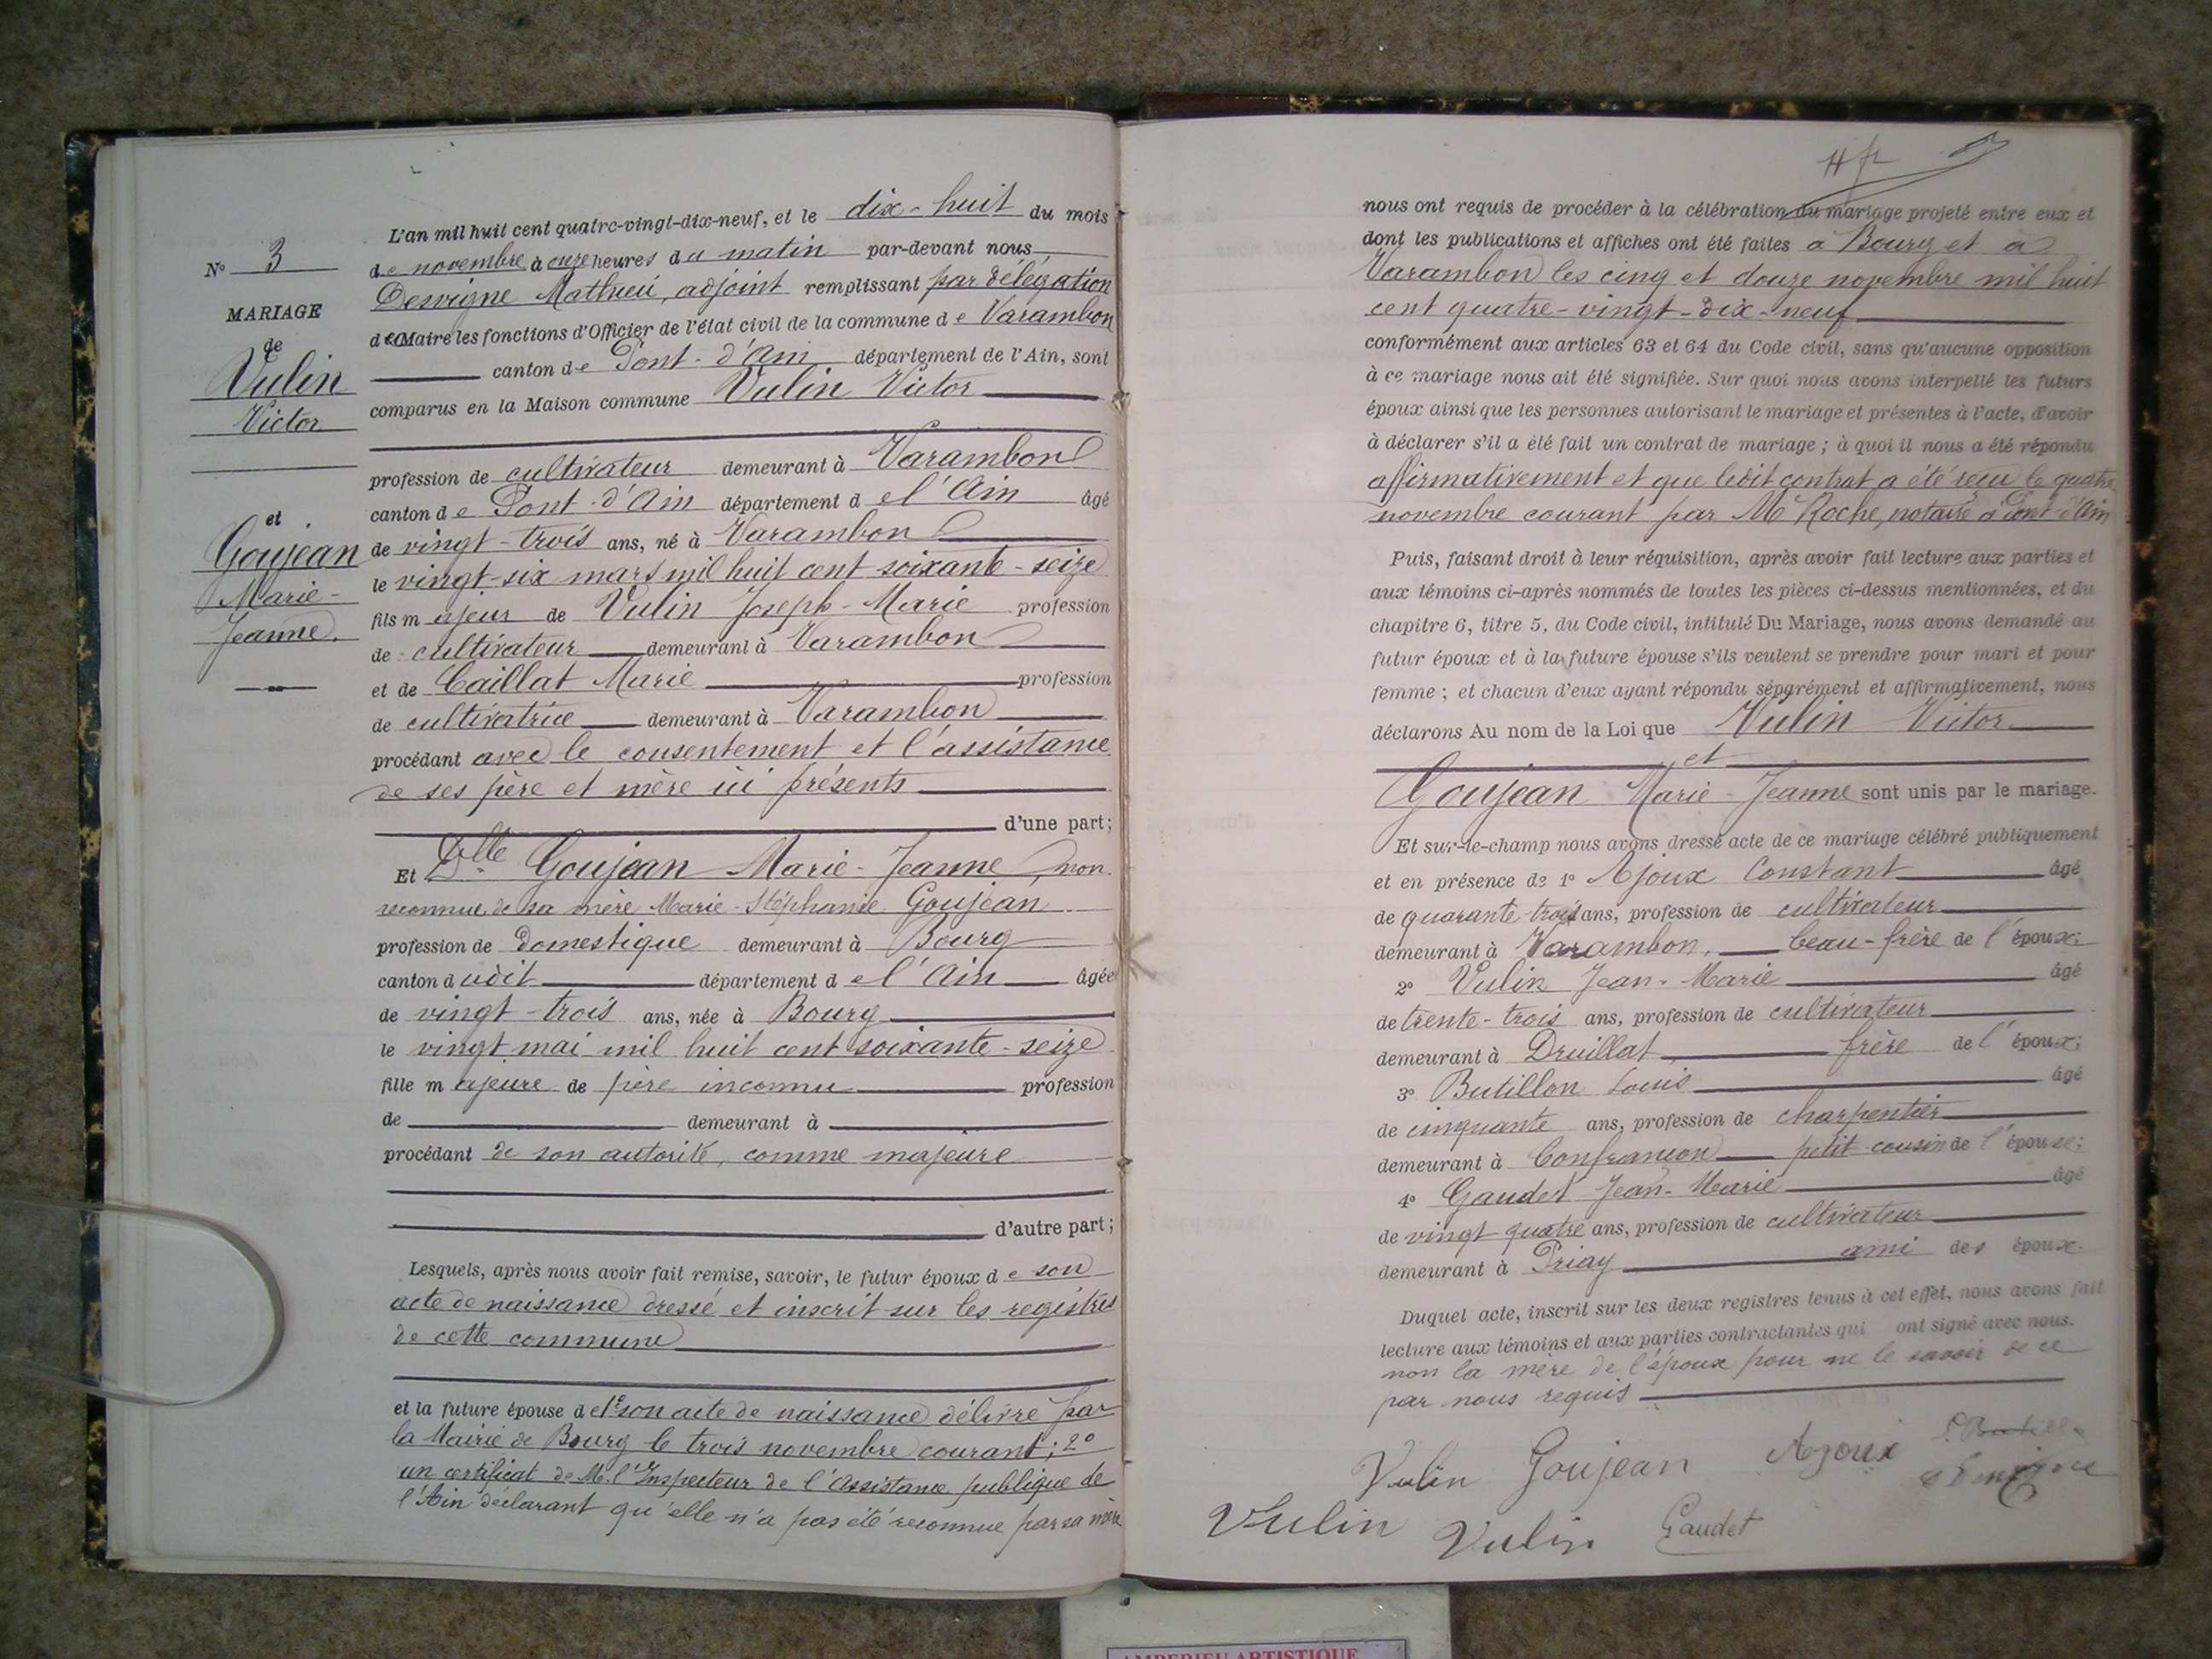 N° 3
MARIAGE
de
Vulin
Victor
et
Goujean
Marie-
Jeanne.
L'an mil huit cent quatre-vingt-dix-neuf, et le dix-huit du mois
de novembre à onze heures du matin par-devant nous
Desvigne Mathieu, adjoint remplissant par délégation
de Maire les fonctions d'Officier de l'état civil de la commune de Varambon
canton de Pont-d'Ain département de l'Ain, sont
comparus en la Maison commune Vulin Victor
profession de cultivateur demeurant à Varambon
canton de Pont-d'Ain département de l'Ain âgé
de vingt-trois ans, né à Varambon
le vingt-six mars mil huit cent soixante-seize
fils majeur de Vulin Joseph-Marie profession
de cultivateur demeurant à Varambon
et de Caillat Marie profession
de cultivatrice demeurant à Varambon
procédant avec le consentement et l'assistance
de ses père et mère ici présents
d'une part;
Et Dlle Goujean Marie-Jeanne, non
reconnue de sa mère Marie-Stéphanie Goujean
profession de domestique demeurant à Bourg
canton dudit département de l'Ain âgée
de vingt-trois ans, née à Bourg
le vingt mai mil huit cent soixante-seize
fille majeure de père inconnu profession
de demeurant à
procédant de son autorité, comme majeure
d'autre part;
Lesquels, après nous avoir fait remise, savoir, le futur époux de son
acte de naissance dressé et inscrit sur les registres
de cette commune
et la future épouse de 1° son acte de naissance délivré par
la Mairie de Bourg le trois novembre courant; 2°
un certificat de M. l'Inspecteur de l'Assistance publique de
l'Ain déclarant qu'elle n'a pas été reconnue par sa mère
nous ont requis de procéder à la célébration du mariage projeté entre eux et
dont les publications et affiches ont été faites à Bourg et à
Varambon les cinq et douze novembre mil huit
cent quatre-vingt-dix-neuf
conformément aux articles 63 et 64 du Code civil, sans qu'aucune opposition
à ce mariage nous ait été signifiée. Sur quoi nous avons interpellé les futurs
époux ainsi que les personnes autorisant le mariage et présentes à l'acte, d'avoir
à déclarer s'il a été fait un contrat de mariage; à quoi il nous a été répondu
affirmativement et que ledit contrat a été reçu le quatre
novembre courant par Me Roche, notaire à Pont-d'Ain
Puis, faisant droit à leur réquisition, après avoir fait lecture aux parties et
aux témoins ci-après nommés de toutes les pièces ci-dessus mentionnées, et du
chapitre 6, titre 5, du Code civil, intitulé Du Mariage, nous avons demandé au
futur époux et à la future épouse s'ils veulent se prendre pour mari et pour
femme; et chacun d'eux ayant répondu séparément et affirmativement, nous
déclarons Au nom de la Loi que Vulin Victor
et
Goujean Marie-Jeanne sont unis par le mariage.
Et sur-le-champ nous avons dressé acte de ce mariage célébré publiquement
et en présence de 1° Ajoux Constant âgé
de quarante-trois ans, profession de cultivateur
demeurant à Varambon, beau-frère de l'époux;
2° Vulin Jean-Marie âgé
de trente-trois ans, profession de cultivateur
demeurant à Druillat, frère de l'époux;
3° Butillon Louis âgé
de cinquante ans, profession de charpentier
demeurant à Confrançon petit-cousin de l'épouse;
4° Gaudet Jean-Marie âgé
de vingt-quatre ans, profession de cultivateur
demeurant à Priay ami des époux.
Duquel acte, inscrit sur les deux registres tenus à cet effet, nous avons fait
lecture aux témoins et aux parties contractantes qui ont signé avec nous.
non la mère de l'époux pour ne le savoir de ce
par nous requis
Vulin Goujean Ajoux
Vulin Vulin Gaudet
AMBERIEU ARTISTIQUE